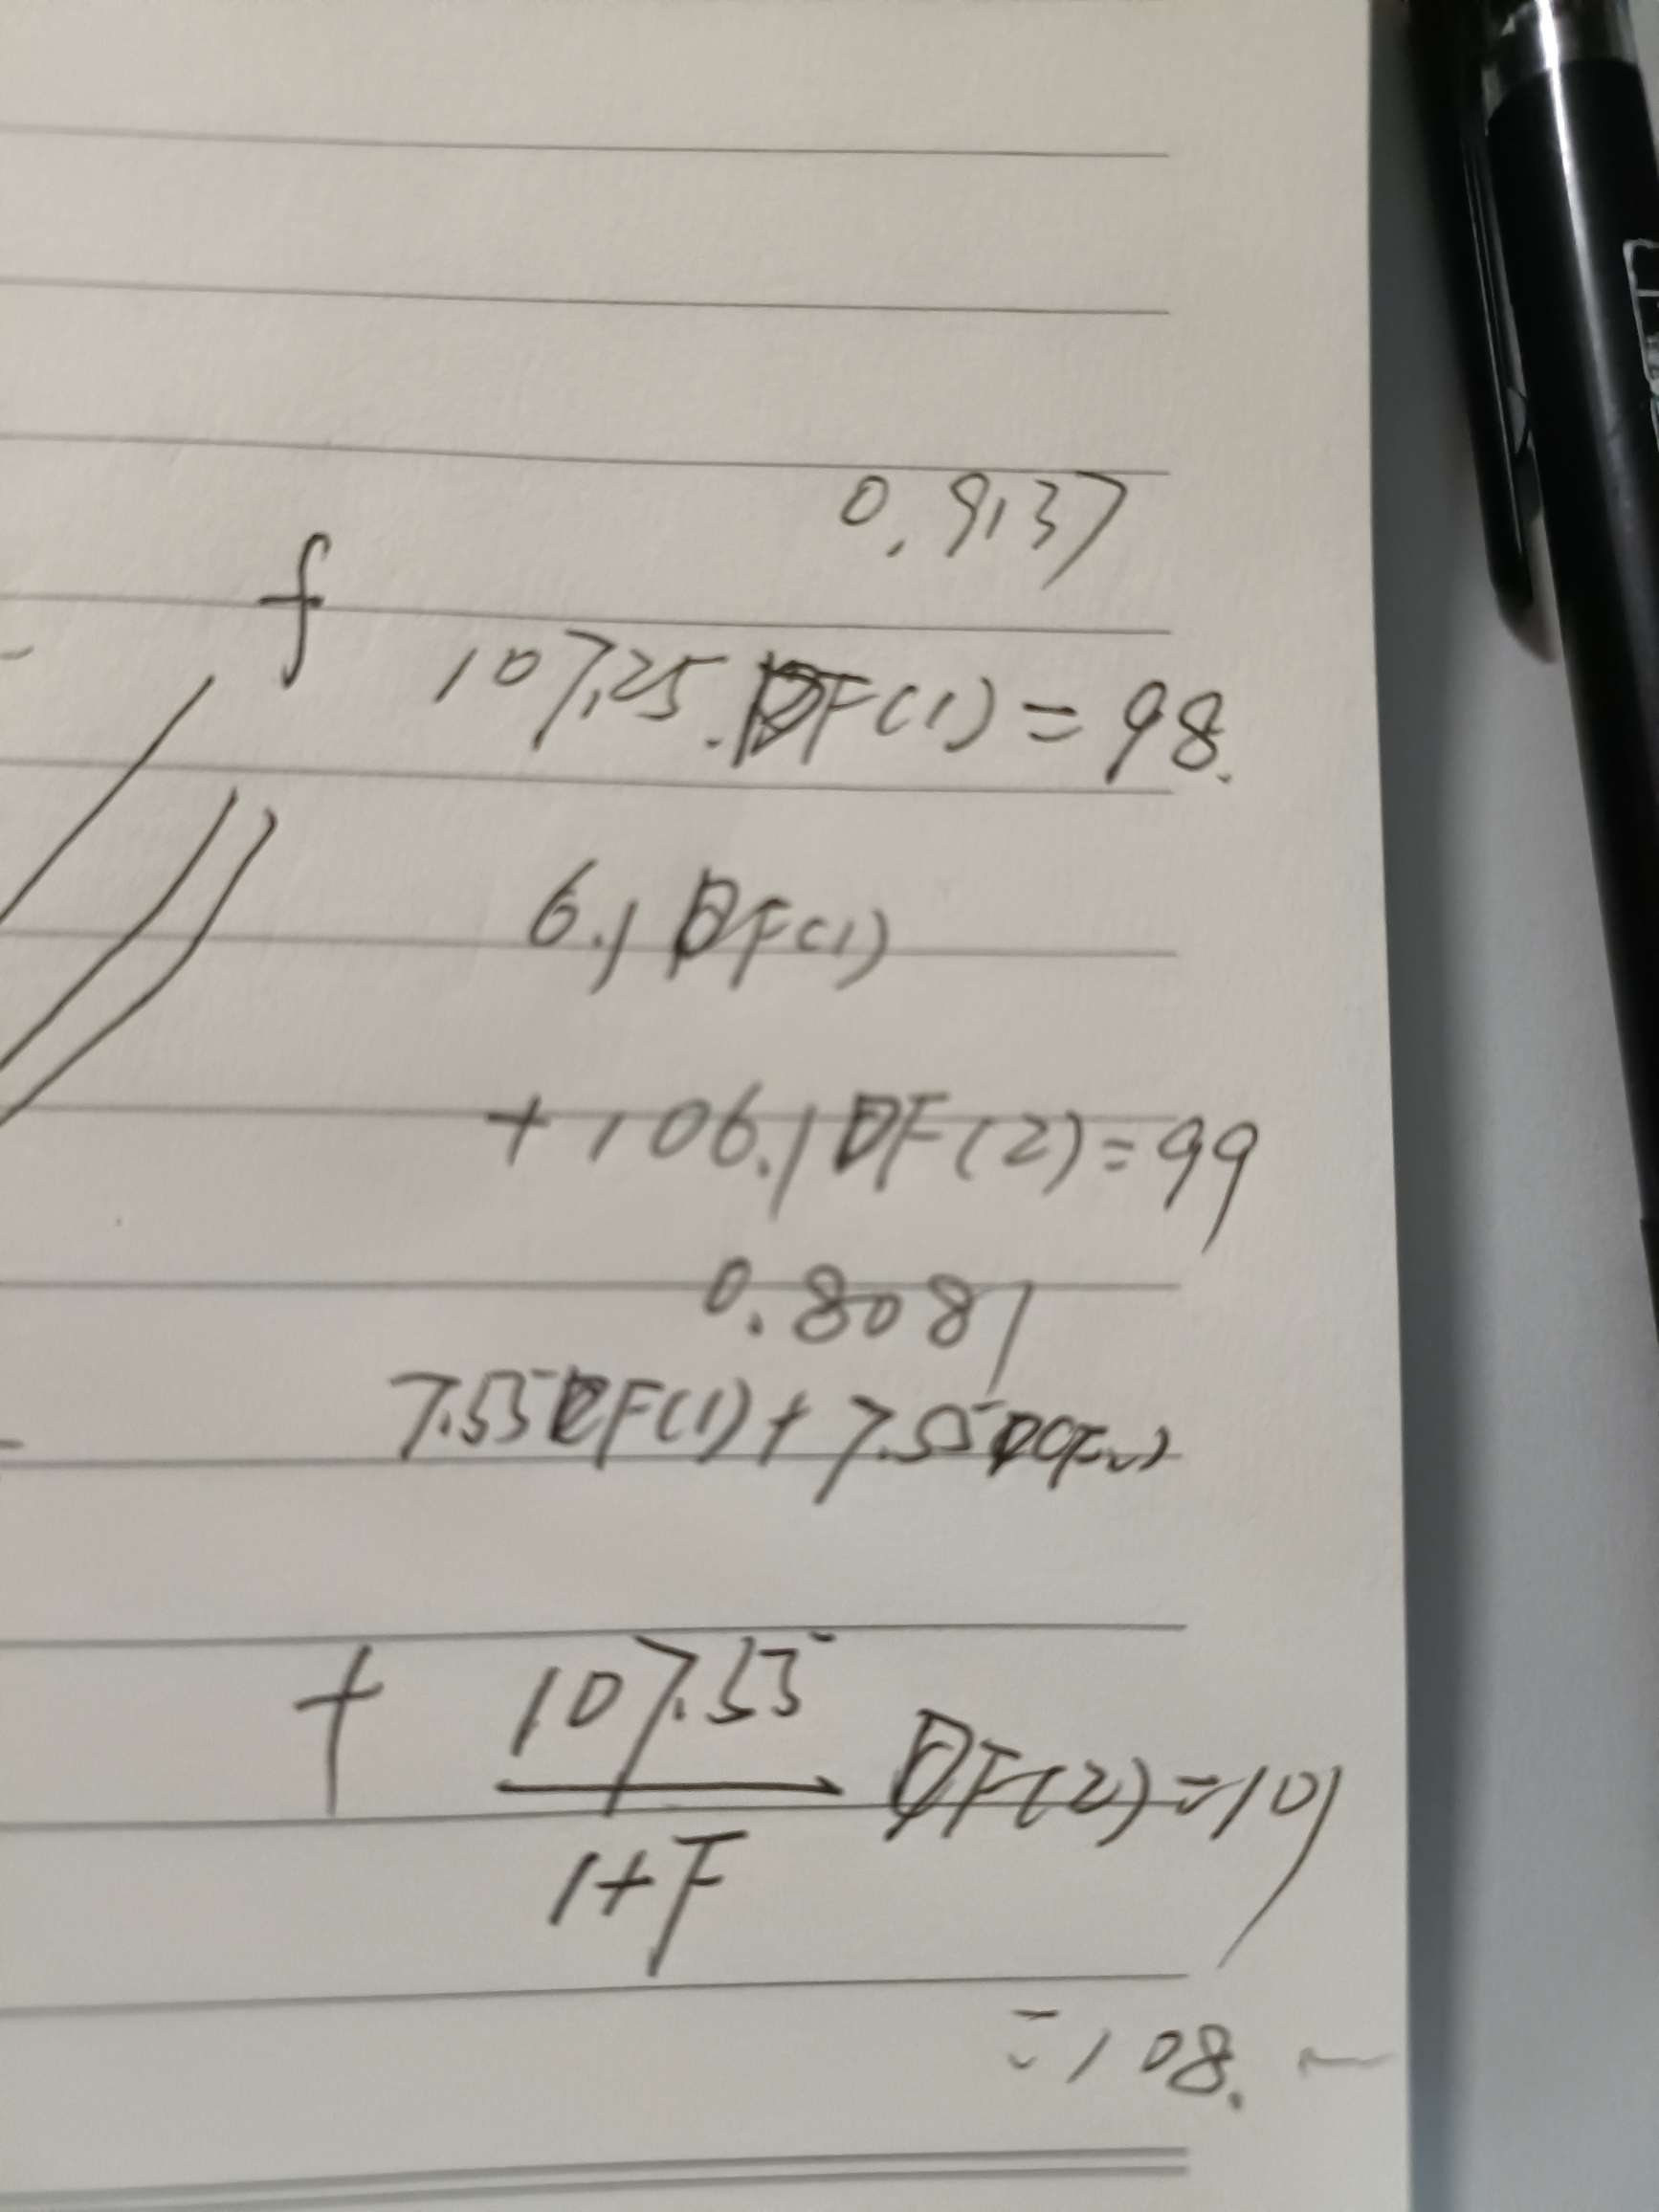 0.9137
f
107.25.DF(1)=98.
6.1 DF(1)
+106.1DF(2)=99
0.8087
7.55DF(1)+7.55
+ 107.55
DF(2)=101
1+F
=108.